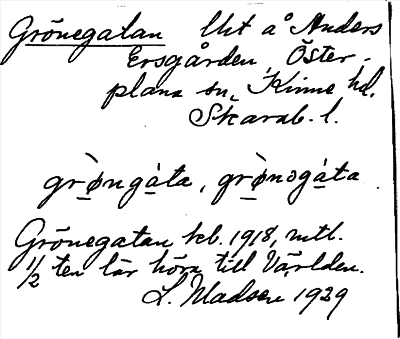 Grönegatan lht å Anders
Ersgården, Öster-
plana sn, Kinne hd,
Skarab. l.
grø̀ngáta, grø̀nəgáta
Grönegatan kb. 1918, mtl.
1/2 ten lär höra till Världen.
L. Madsen 1929